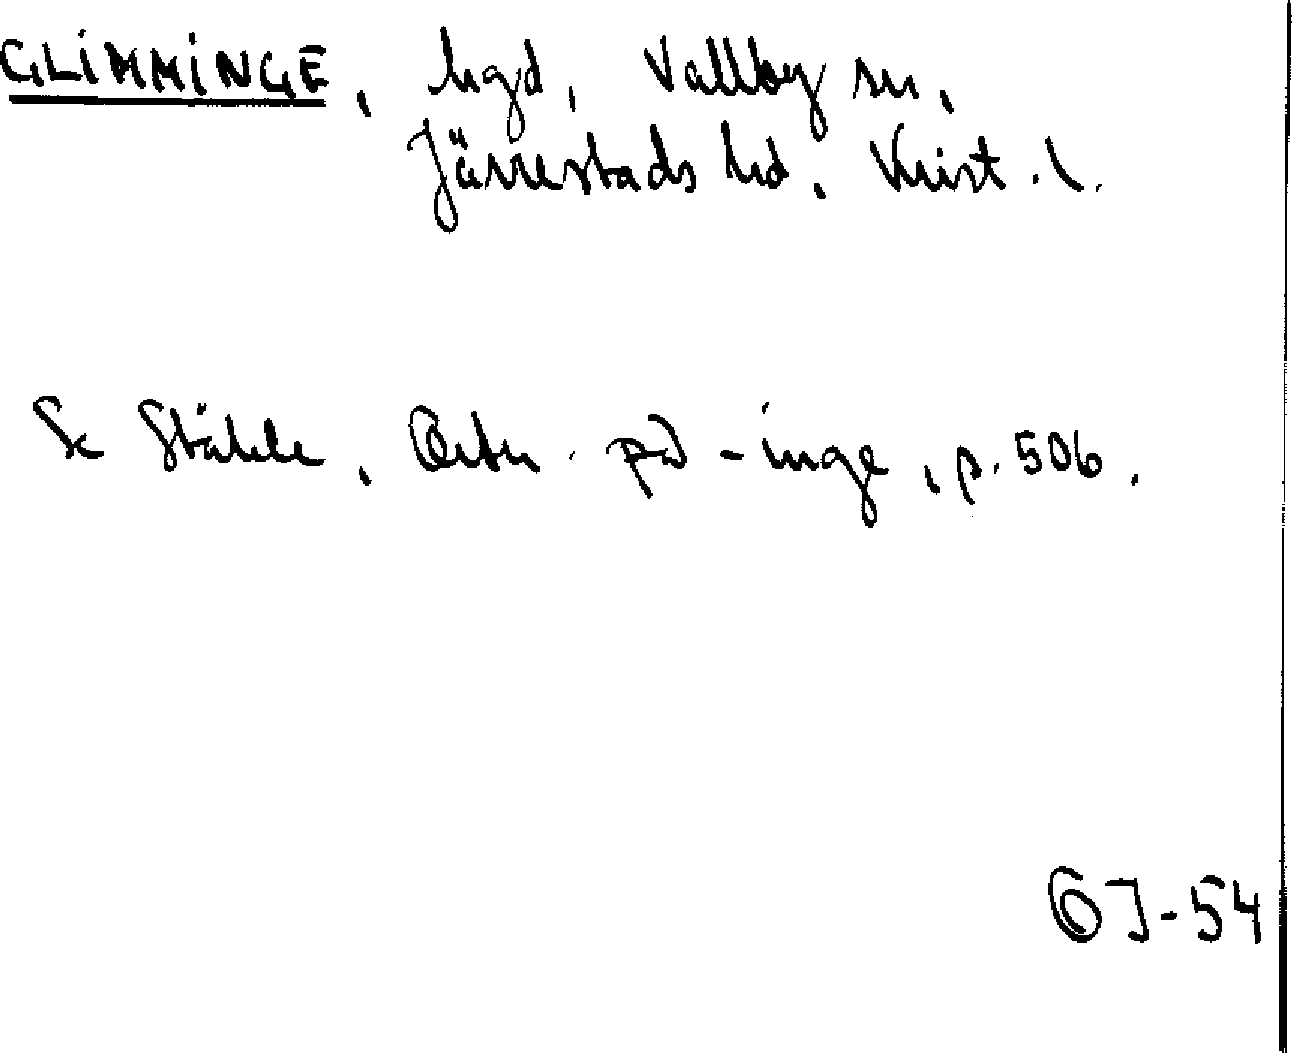 GLIMMINGE, hgd, Vallby sn,
Järrestads hd. Krist. l.
Se Ståhle, Ortn. på -inge, p. 506.